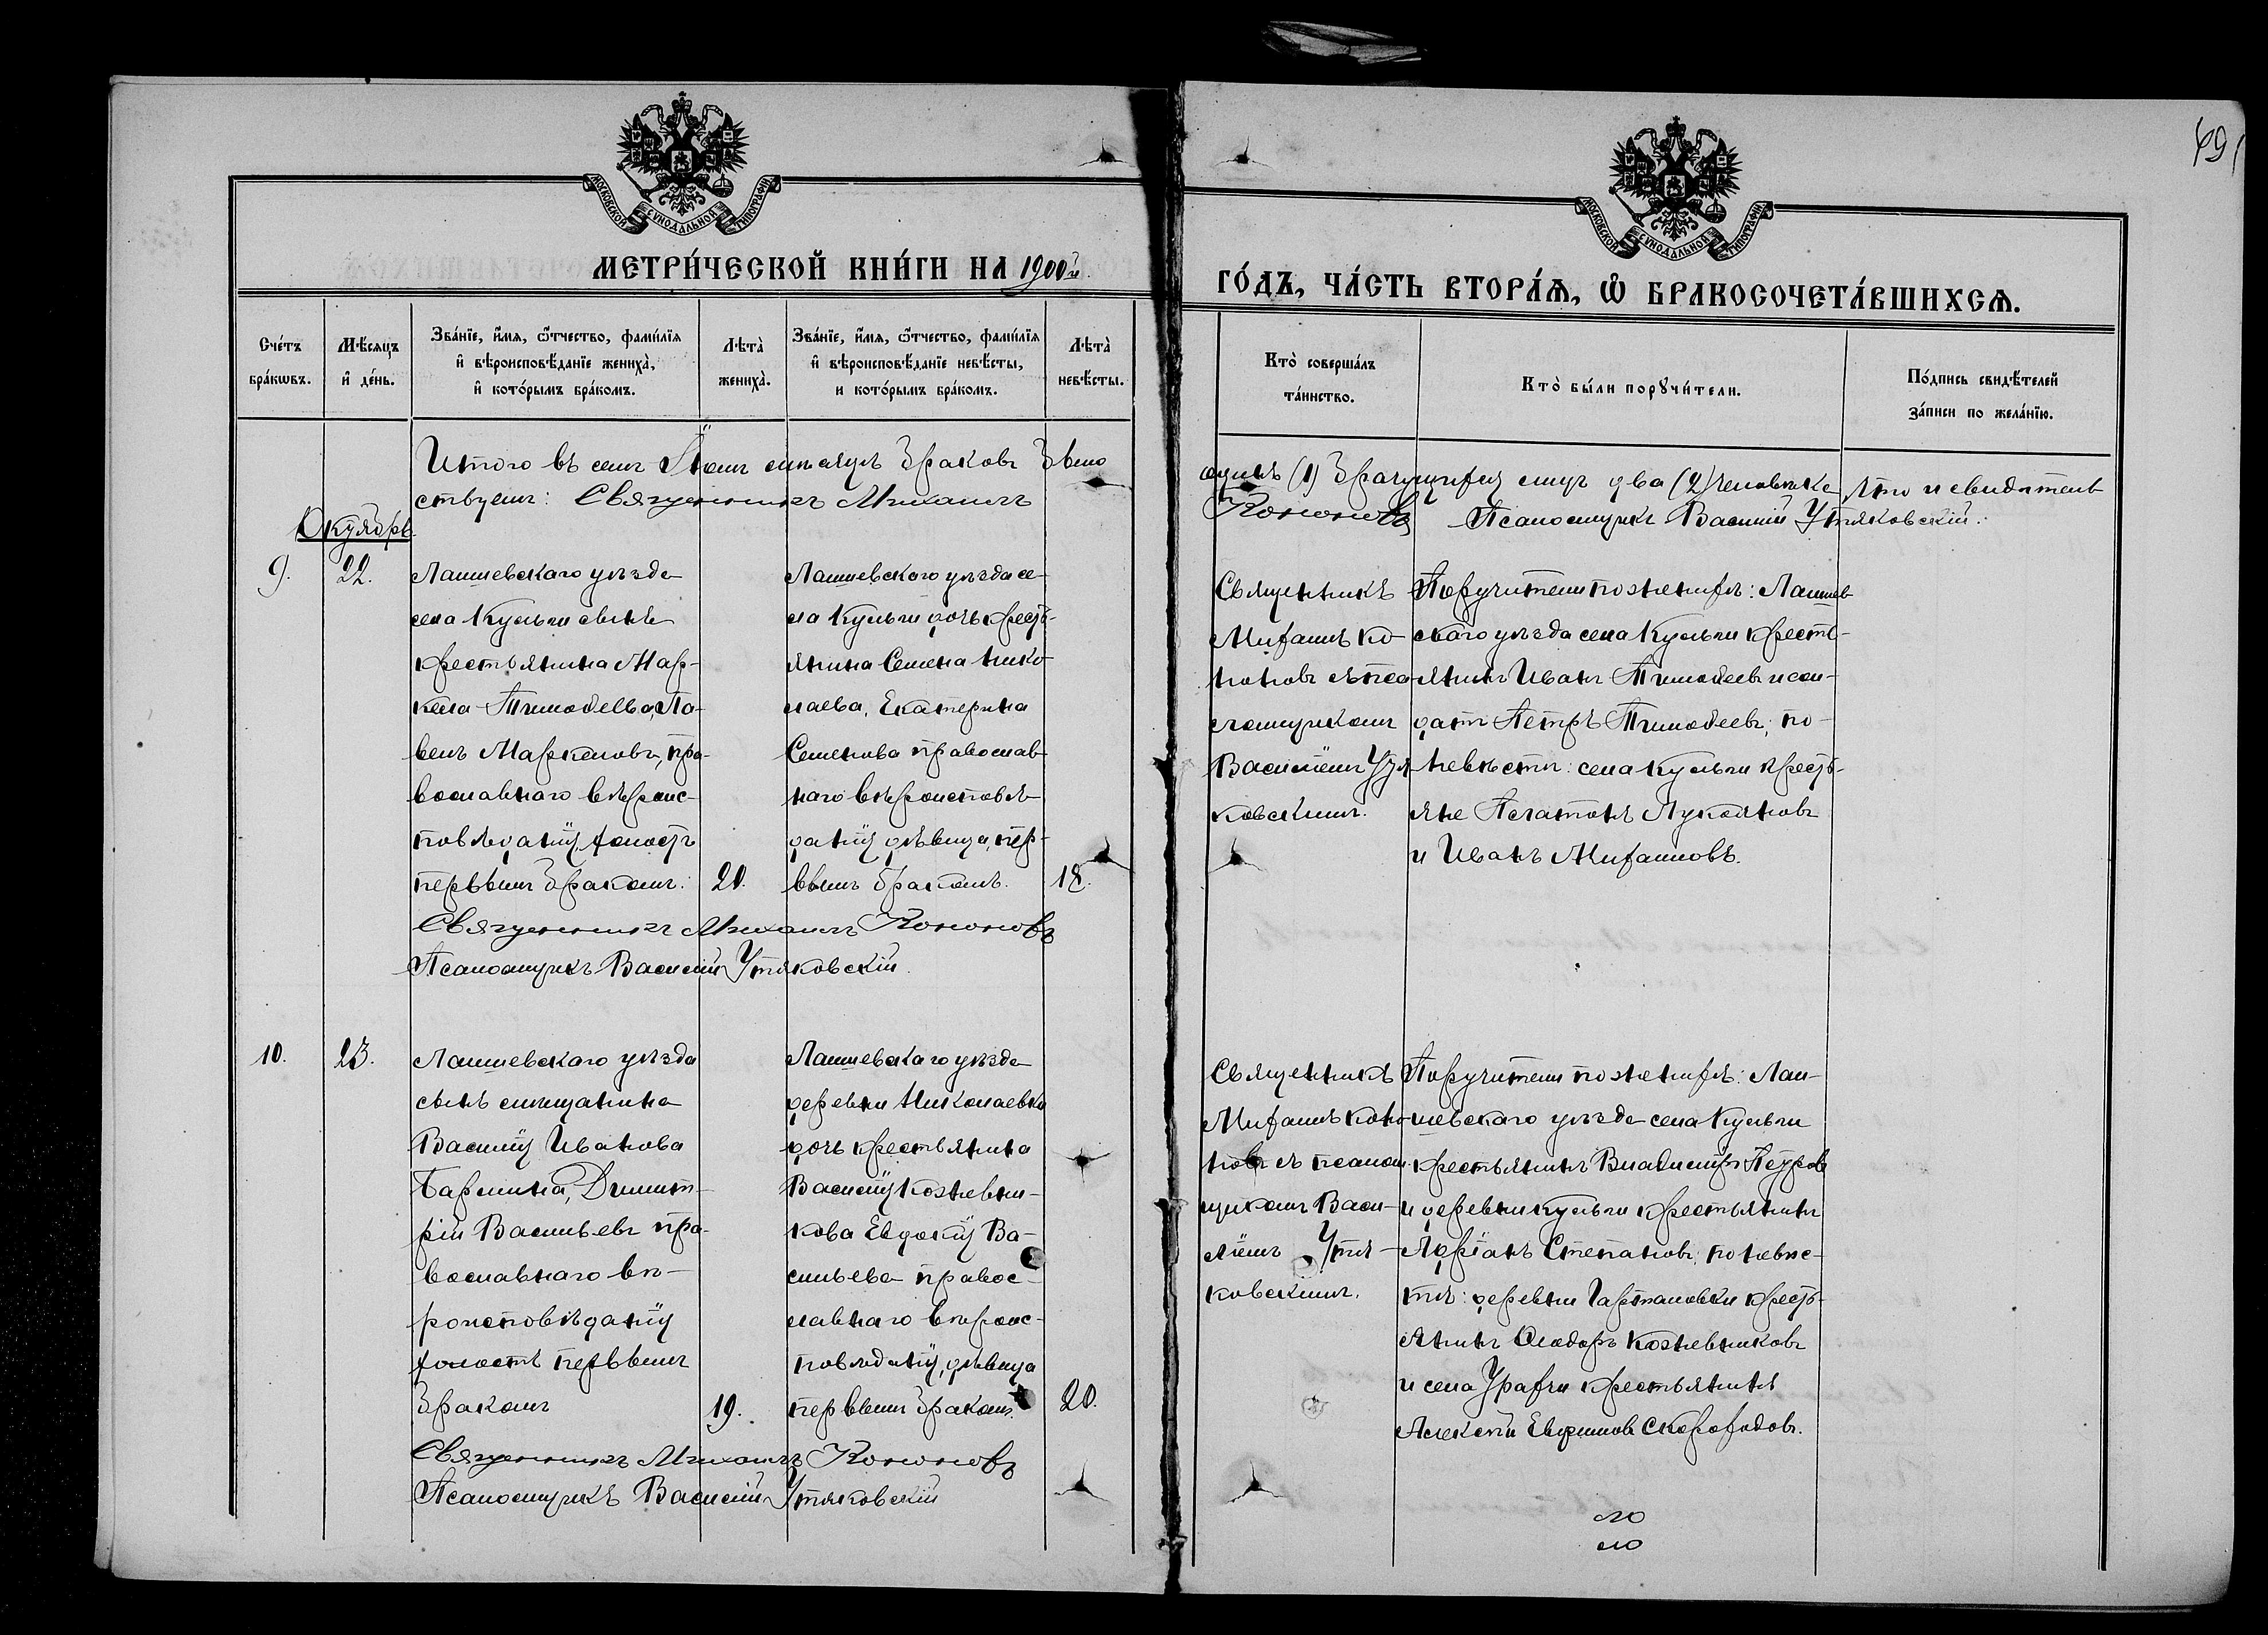 491
МОСКОВСКОЙ СѴНОДАЛЬНОЙ ТИПОГРАФІИ
МОСКОВСКОЙ СѴНОДАЛЬНОЙ ТИПОГРАФІИ
МЕТРИ́ЧЕСКОЙ КНИ́ГИ НА 1900й
ГО́ДЪ, ЧА́СТЬ ВТОРА́Ѧ, Ѽ БРАКОСОЧЕТА́ВШИХСѦ.
Сче́тъ бра́кѡвъ.
Мѣ́сяцъ и҆ де́нь.
Зва́нїе, и҆́мя, ѻ҆́тчество, фами́лїя
и҆ вѣроисповѣ́данїе жениха̀,
и҆ кото́рымъ бра́комъ.
Лѣта̀ жениха̀.
Зва́нїе, и҆́мя, ѻ҆́тчество, фами́лїя
и҆ вѣроисповѣ́данїе невѣ́сты,
и кото́рымъ бра́комъ.
Лѣта̀ невѣ́сты.
Кто̀ соверша́лъ та́инство.
Кто̀ бы́ли порꙋчи́тели.
По́дпись свидѣ́телей
за́писи по жела́нїю.
Итого въ семъ мѣсяцѣ браковъ
одинъ (1) два (2) человѣка что и свидѣтель
ствуемъ: Священникъ Михаилъ
Кононовъ Псаломщикъ Василий Утяковскій.
Октябрь
9. 22.
Лаишевскаго уѣзда
села Кульги сынъ
крестьянина Мар-
кела Тимоѳеева, Па-
велъ Маркеловъ, пра-
вославнаго вѣроис-
повѣданія, холостъ
первымъ бракомъ.
20.
Лаишевскаго уѣзда се-
ла Кульги дочь кресть-
янина Семена Нико-
лаева, Екатерина
Семенова православ-
наго вѣроисповѣ-
данія дѣвица, пер-
вымъ бракомъ.
18.
Священникъ
Михаилъ Ко-
ноновъ съ пса-
ломщикомъ
Василіемъ Утя-
ковскимъ.
Поручители по женихѣ: Лаишев
скаго уѣзда села Кульги кресть-
янинъ Иванъ Тимоѳеевъ и сол-
датъ Петръ Тимоѳеевъ; по
невѣстѣ: села Кульги кресть-
яне Платонъ Лукояновъ
и Иванъ Михаиловъ.
Священникъ Михаилъ Кононовъ
Псаломщикъ Василий Утяковскій.
10. 23.
Лаишевскаго уѣзда
сынъ мѣщанина
Василія Иванова
Димит-
рій Васильевъ пра-
вославнаго вѣ-
роисповѣданія
холостъ первымъ
бракомъ
19.
Лаишевскаго уѣзда
деревни Николаевки
дочь крестьянина
Василія Кожевни-
кова Евдокія Ва-
сильева правос-
лавнаго вѣроис-
повѣданія, дѣвица
первымъ бракомъ.
20.
Священникъ
Михаилъ Коно-
новъ съ псалом-
щикомъ Васи-
ліемъ Утя-
ковскимъ.
Поручители по женихѣ: Лаи-
шевскаго уѣзда села Кульги
крестьянинъ Владимиръ Петровъ
и деревни Кульги крестьянинъ
Адріанъ Степановъ; по невѣс-
тѣ: деревни Гартановки кресть-
янинъ Ѳеодоръ Кожевниковъ
и села Урахчи крестьянинъ
Алексѣй Скороходовъ.
Священникъ Михаилъ Кононовъ
Псаломщикъ Василій Утяковскій